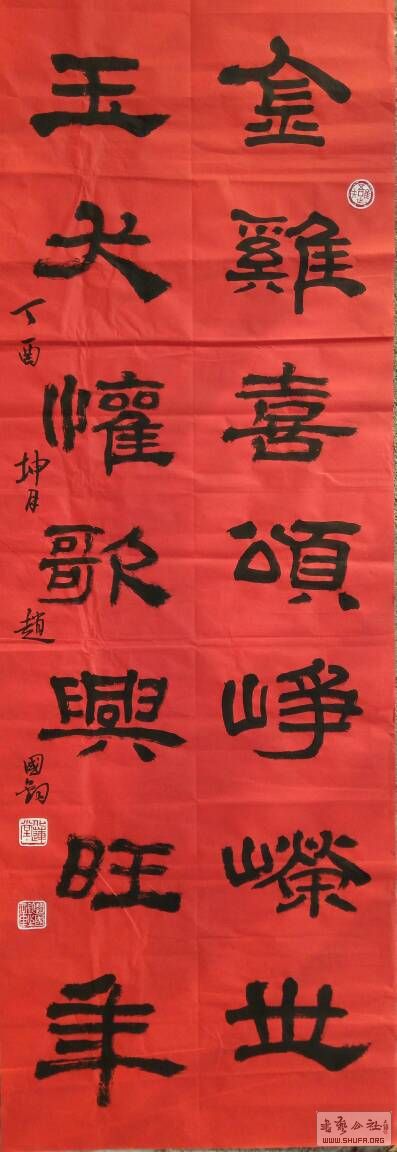 金雞喜頌崢嶸世
玉犬懽歌興旺年
丁酉 坤月 趙國鈞
書藝公社
WWW.SHUFA.ORG